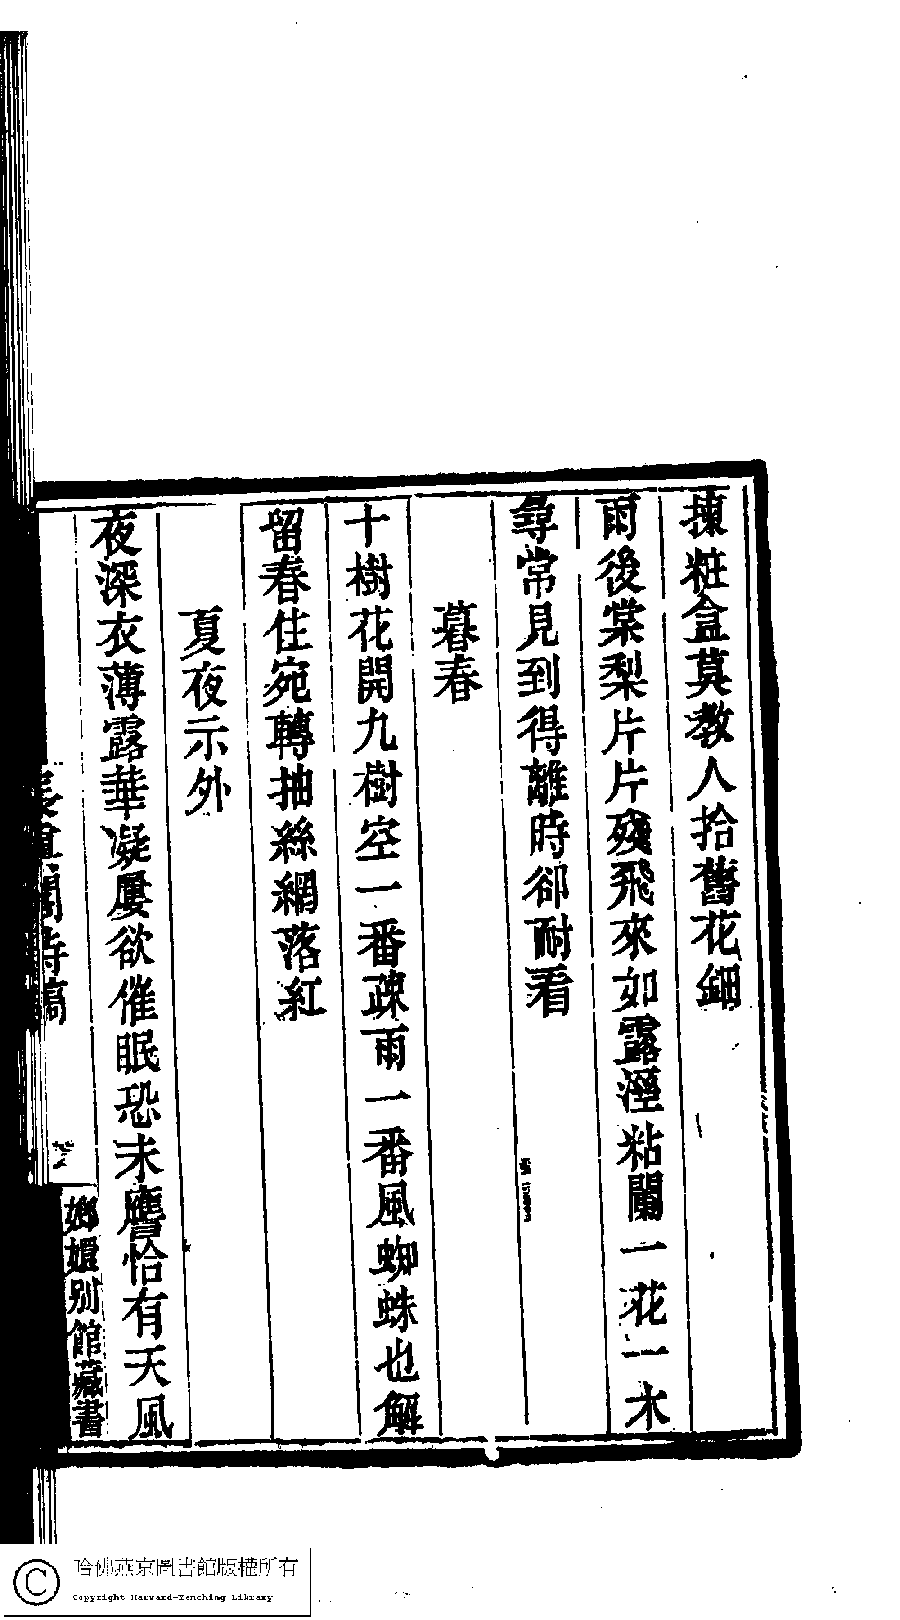 揀粧盒莫教人拾舊花鈿
雨後棠梨片片殘飛來如露溼粘闌一花一木
尋常見到得離時卻耐看
暮春
十樹花開九樹空一番疎雨一番風蜘蛛也解
留春住宛轉抽絲網落紅
夏夜示外
夜深衣薄露華凝屢欲催眠恐未應恰有天風
長真閣詩稿
嫏嬛别館藏書
哈佛燕京圖書館版權所有
Copyright Harvard-Yenching Library